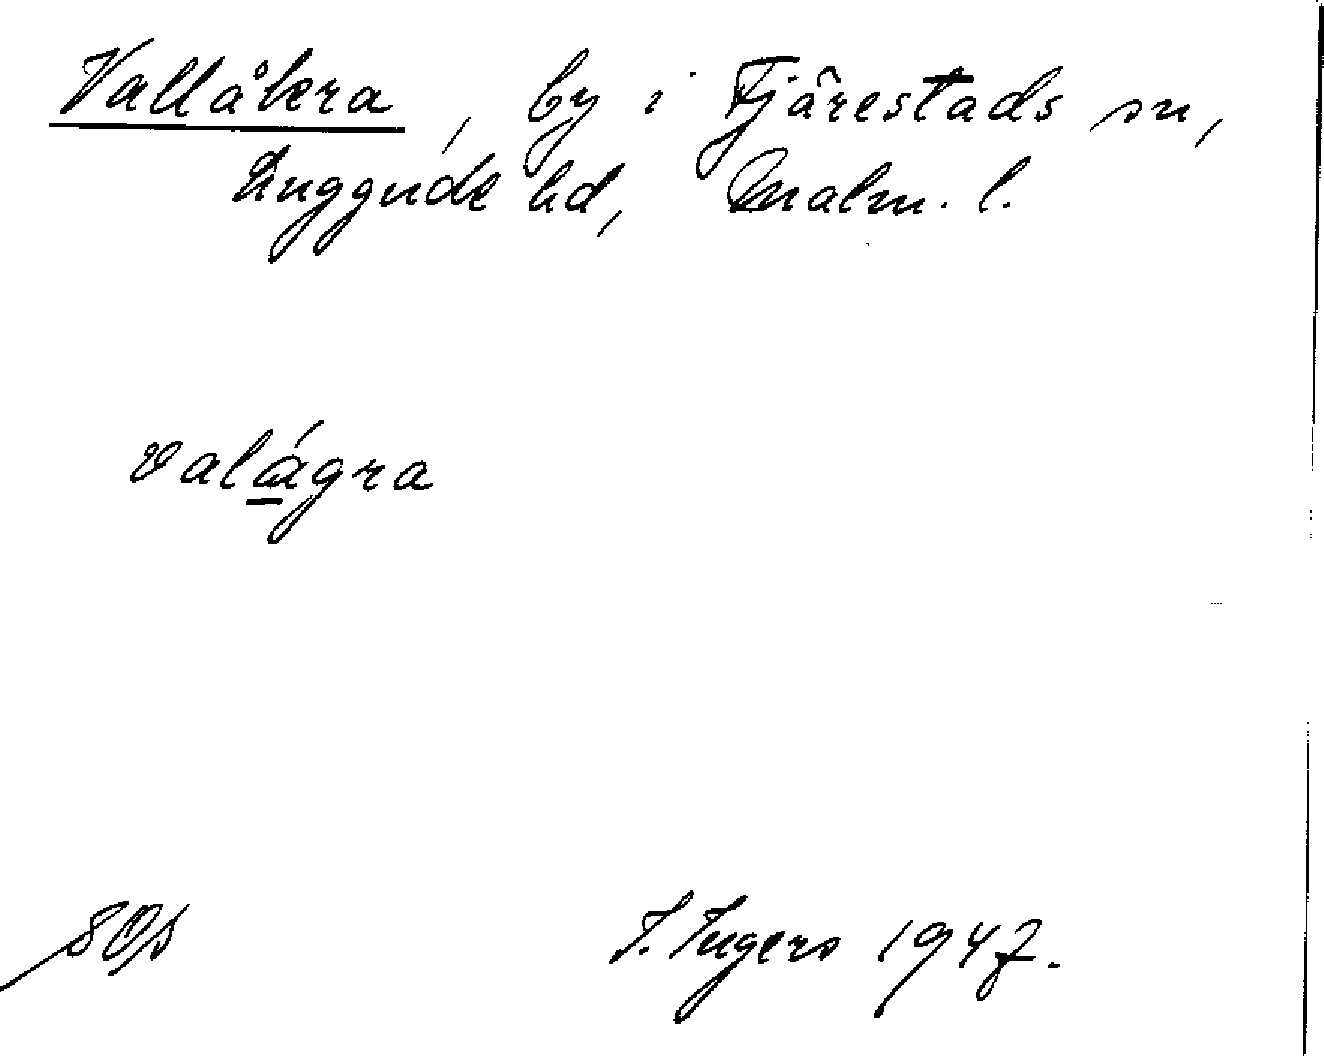 Vallåkra, by i Fjärestads sn,
Luggude hd, Malm. l.
valágra
I. Ingers 1947.